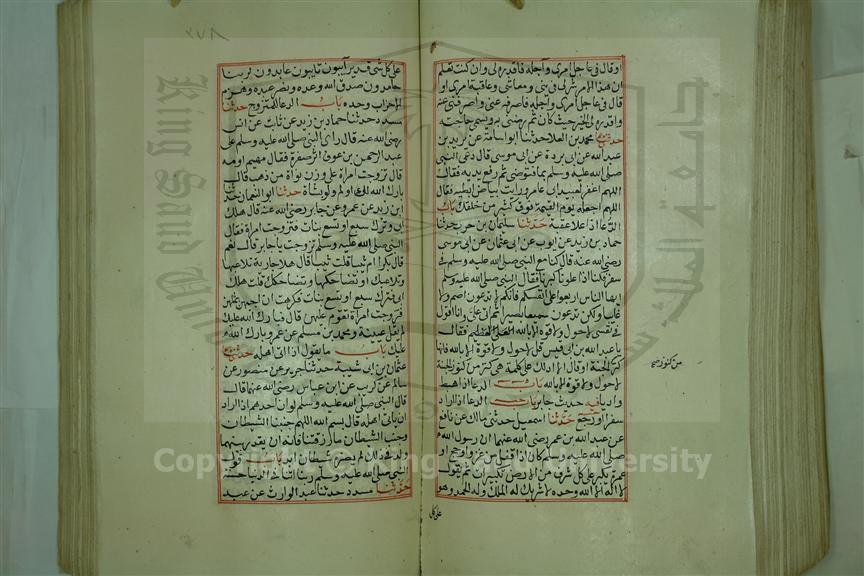 او قال في عاجل امري وآجله فاقدره لي وان كنت تعلم
ان هذا الامر شر لي في ديني ومعاشي وعاقبة امري او
قال في عاجل امري وآجله فاصرفه عني واصرفني عنه
واقدر لي الخير حيث كان ثم رضني به ويسمي حاجته
محمد بن العلا حدثنا ابو اسامة عن بريد بن
عبد الله عن ابي بردة عن ابي موسى قال دعى النبي
صلى الله عليه وسلم بماء فتوضى ثم رفع يديه فقال
اللهم اغفر لعبيد ابي عامر ورايت بياض ابطيه فقال
اللهم اجعله يوم القيمة فوق كثير من خلقك باب
الدعاء اذا علا عقبة حدثنا سليمان بن حرب حدثنا
حماد بن زيد عن ايوب عن ابي عثمان عن ابي موسى
رضي الله عنه قال كنا مع النبي صلى الله عليه وسلم في
سفر فكنا اذا علونا كبرنا فقال النبي صلى الله عليه وسلم
ايها الناس اربعوا على انفسكم فانكم لا تدعون اصم ولا
غائبا ولكن تدعون سميعا بصيرا ثم اتى علي وانا اقول
في نفسي لا حول ولا قوة الا بالله العلي العظيم فقال
يا عبد الله بن قيس قل لا حول ولا قوة الا بالله فانها
كنز الجنة او قال الا ادلك على كلمة هي كنز من كنوز الجنة
لا حول ولا قوة الا بالله باب الدعاء اذا هبط
واديا فيه حديث جابر باب الدعاء اذا اراد
سفرا او رجع حدثنا اسمعيل حدثني مالك عن نافع
عن عبد الله بن عمر رضي الله عنهما ان رسول الله
صلى الله عليه وسلم كان اذا قفل من غزو او حج او
عمرة يكبر على كل شرف من الارض ثلاث تكبيرات ثم يقول
لا اله الا الله وحده لا شريك له له الملك وله الحمد وهو
على كل
من كنوز
على كل شي قدير آيبون تايبون عابدون لربنا
حامدون صدق الله وعده ونصر عبده وهزم
الاحزاب وحده باب الدعاء للمتزوج حدثنا
مسدد حدثنا حماد بن زيد عن ثابت عن انس
رضي الله عنه قال راى النبي صلى الله عليه وسلم على
عبد الرحمن بن عوف اثر صفرة فقال مهيم او مه
قال تزوجت امراة على وزن نواة من ذهب فقال
بارك الله لك اولم ولو بشاة حدثنا ابو النعمان حدثنا
ابن زيد عن عمرو عن جابر رضي الله عنه قال هلك
ابي وترك سبع او تسع بنات فتزوجت امراة فقال
النبي صلى الله عليه وسلم تزوجت يا جابر قال نعم
قال بكرا ام ثيبا قلت ثيبا قال هلا جارية تلاعبها
وتلاعبك او تضاحكها وتضاحكك قلت هلك
ابي فترك سبع او تسع بنات فكرهت ان اجيئهن بمثلهن
فتزوجت امراة تقوم عليهن قال فبارك الله عليك
لم يقل ابن عيينة ومحمد بن مسلم عن عمرو بارك الله
عليك باب ما يقول اذا اتى اهله حدثنا
عثمان بن ابي شيبة حدثنا جرير عن منصور عن
سالم عن كريب عن ابن عباس رضي الله عنهما قال
قال النبي صلى الله عليه وسلم لو ان احدهم اذا اراد
ان ياتي اهله قال بسم الله اللهم جنبنا الشيطان
وجنب الشيطان ما رزقتنا فانه ان يقدر بينهما
ولد في ذلك لم يضره شيطان ابدا باب قول
النبي صلى الله عليه وسلم ربنا آتنا في الدنيا حسنة
حدثنا مسدد حدثنا عبد الوارث عن عبد
جامعة الملك سعود
King Saud University
Copyright © King Saud University